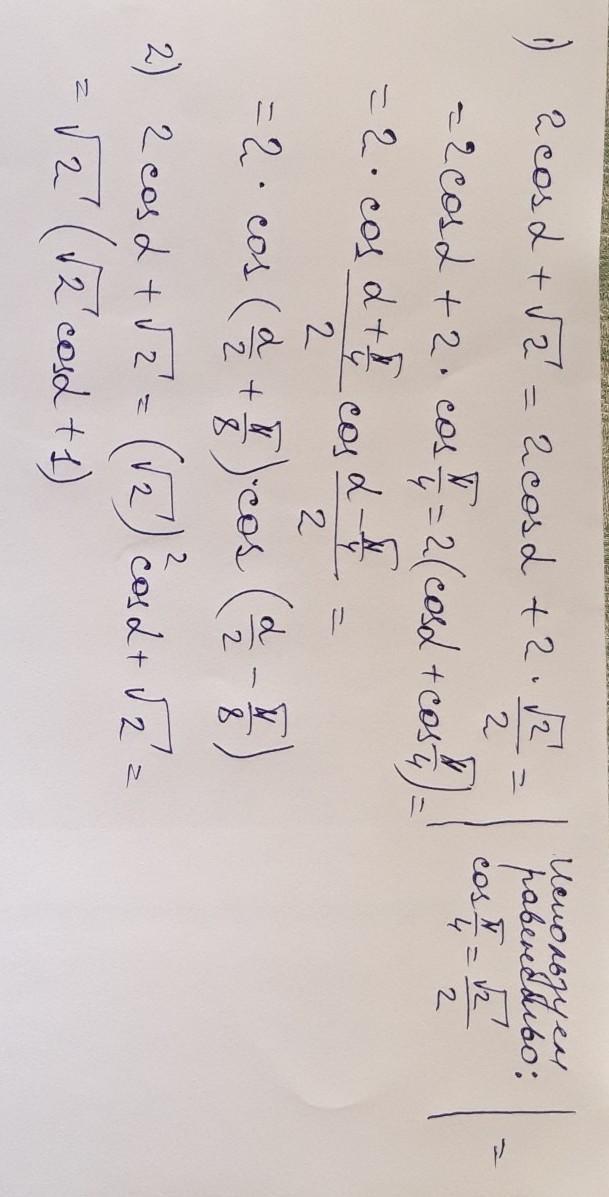 1) 2cosα + √2 = 2cosα + 2 · √2/2 = | Используем равенство: cos π/4 = √2/2 | =
= 2cosα + 2 · cos π/4 = 2(cosα + cos π/4) =
= 2 · cos (α + π/4)/2 cos (α - π/4)/2 =
= 2 · cos (α/2 + π/8) · cos (α/2 - π/8)
2) 2cosα + √2 = (√2)² cosα + √2 =
= √2 (√2 cosα + 1)